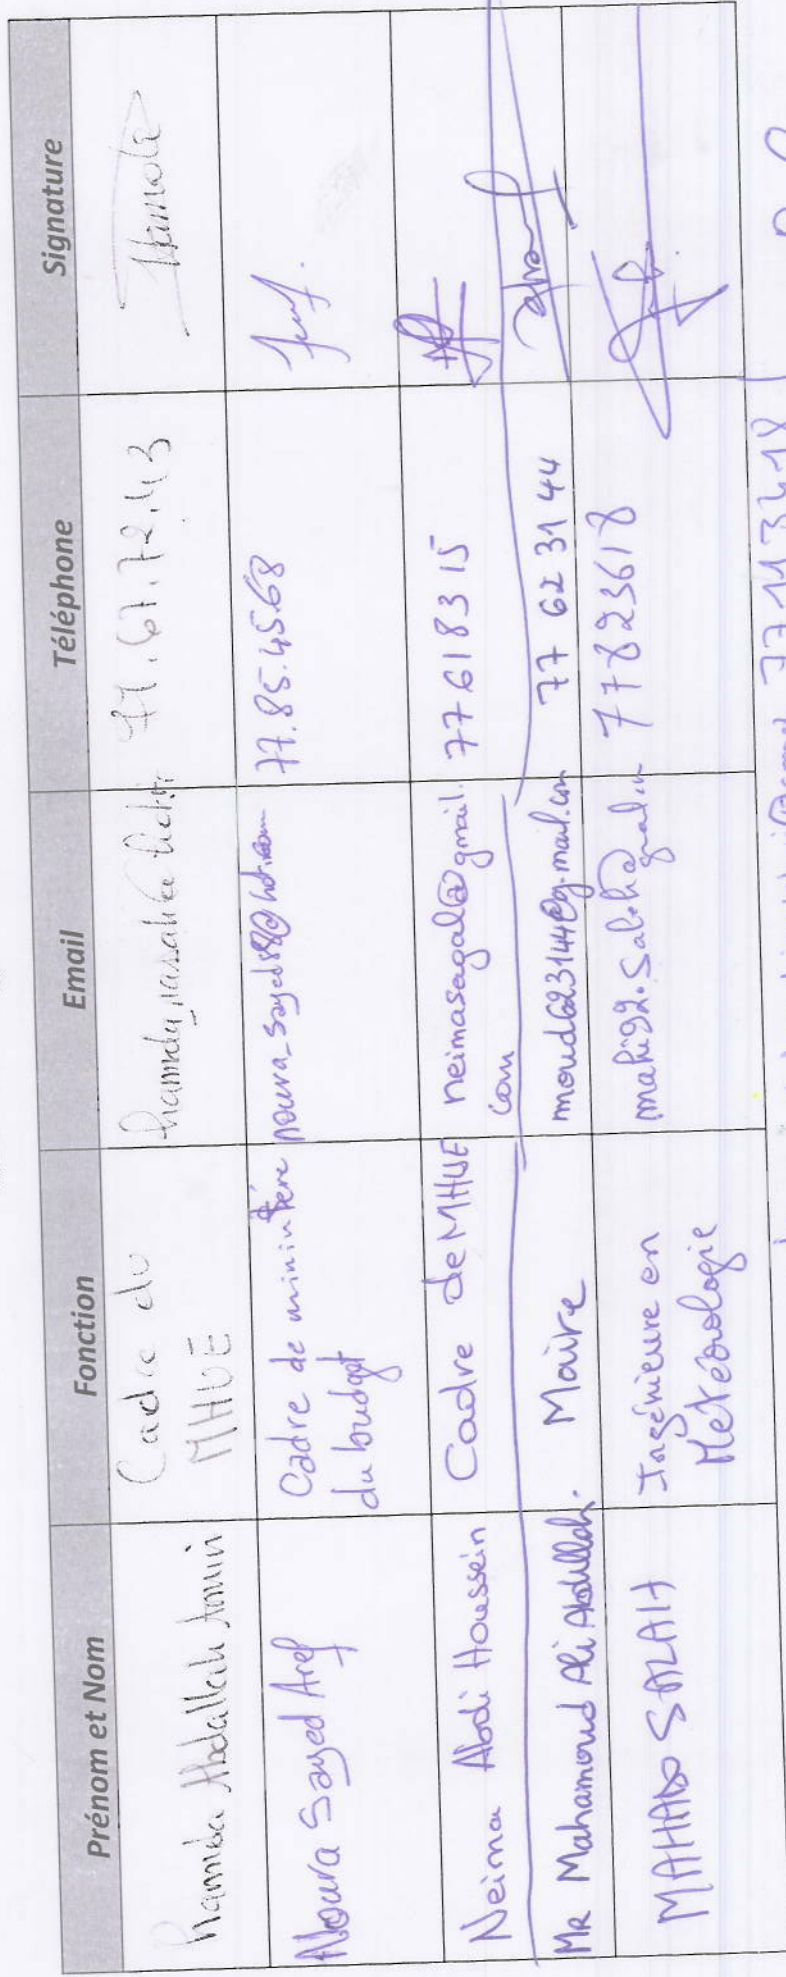 Prénom et Nom Fonction Email Téléphone Signature
hamda Abdallah Amin Cadre du
MHUE
Noura Sayed Aref Cadre de ministère
du budget noura_sayed88@hot.com 77.85.45.68
Neima Abdi Houssein Cadre de MHUE neimasagal@gmail.
com 77 61 83 15
MR Mahamoud Ali Abdillah. Maire moud623144@g-mail.com 77 62 31 44
MAHADO SALAH Ingénieure en
Météorologie 77823618
77113418